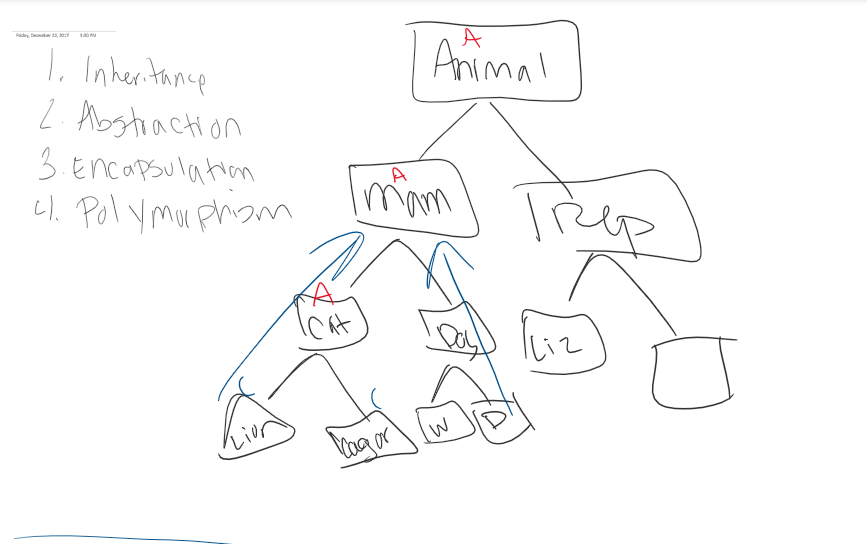 Friday, December 22, 2017 3:00 PM
1. Inheritance
2. Abstraction
3. Encapsulation
4. Polymorphism
A
Animal
A
Mam
Rep
A
Cat
Dog
Liz
C
C
Lion
W
D